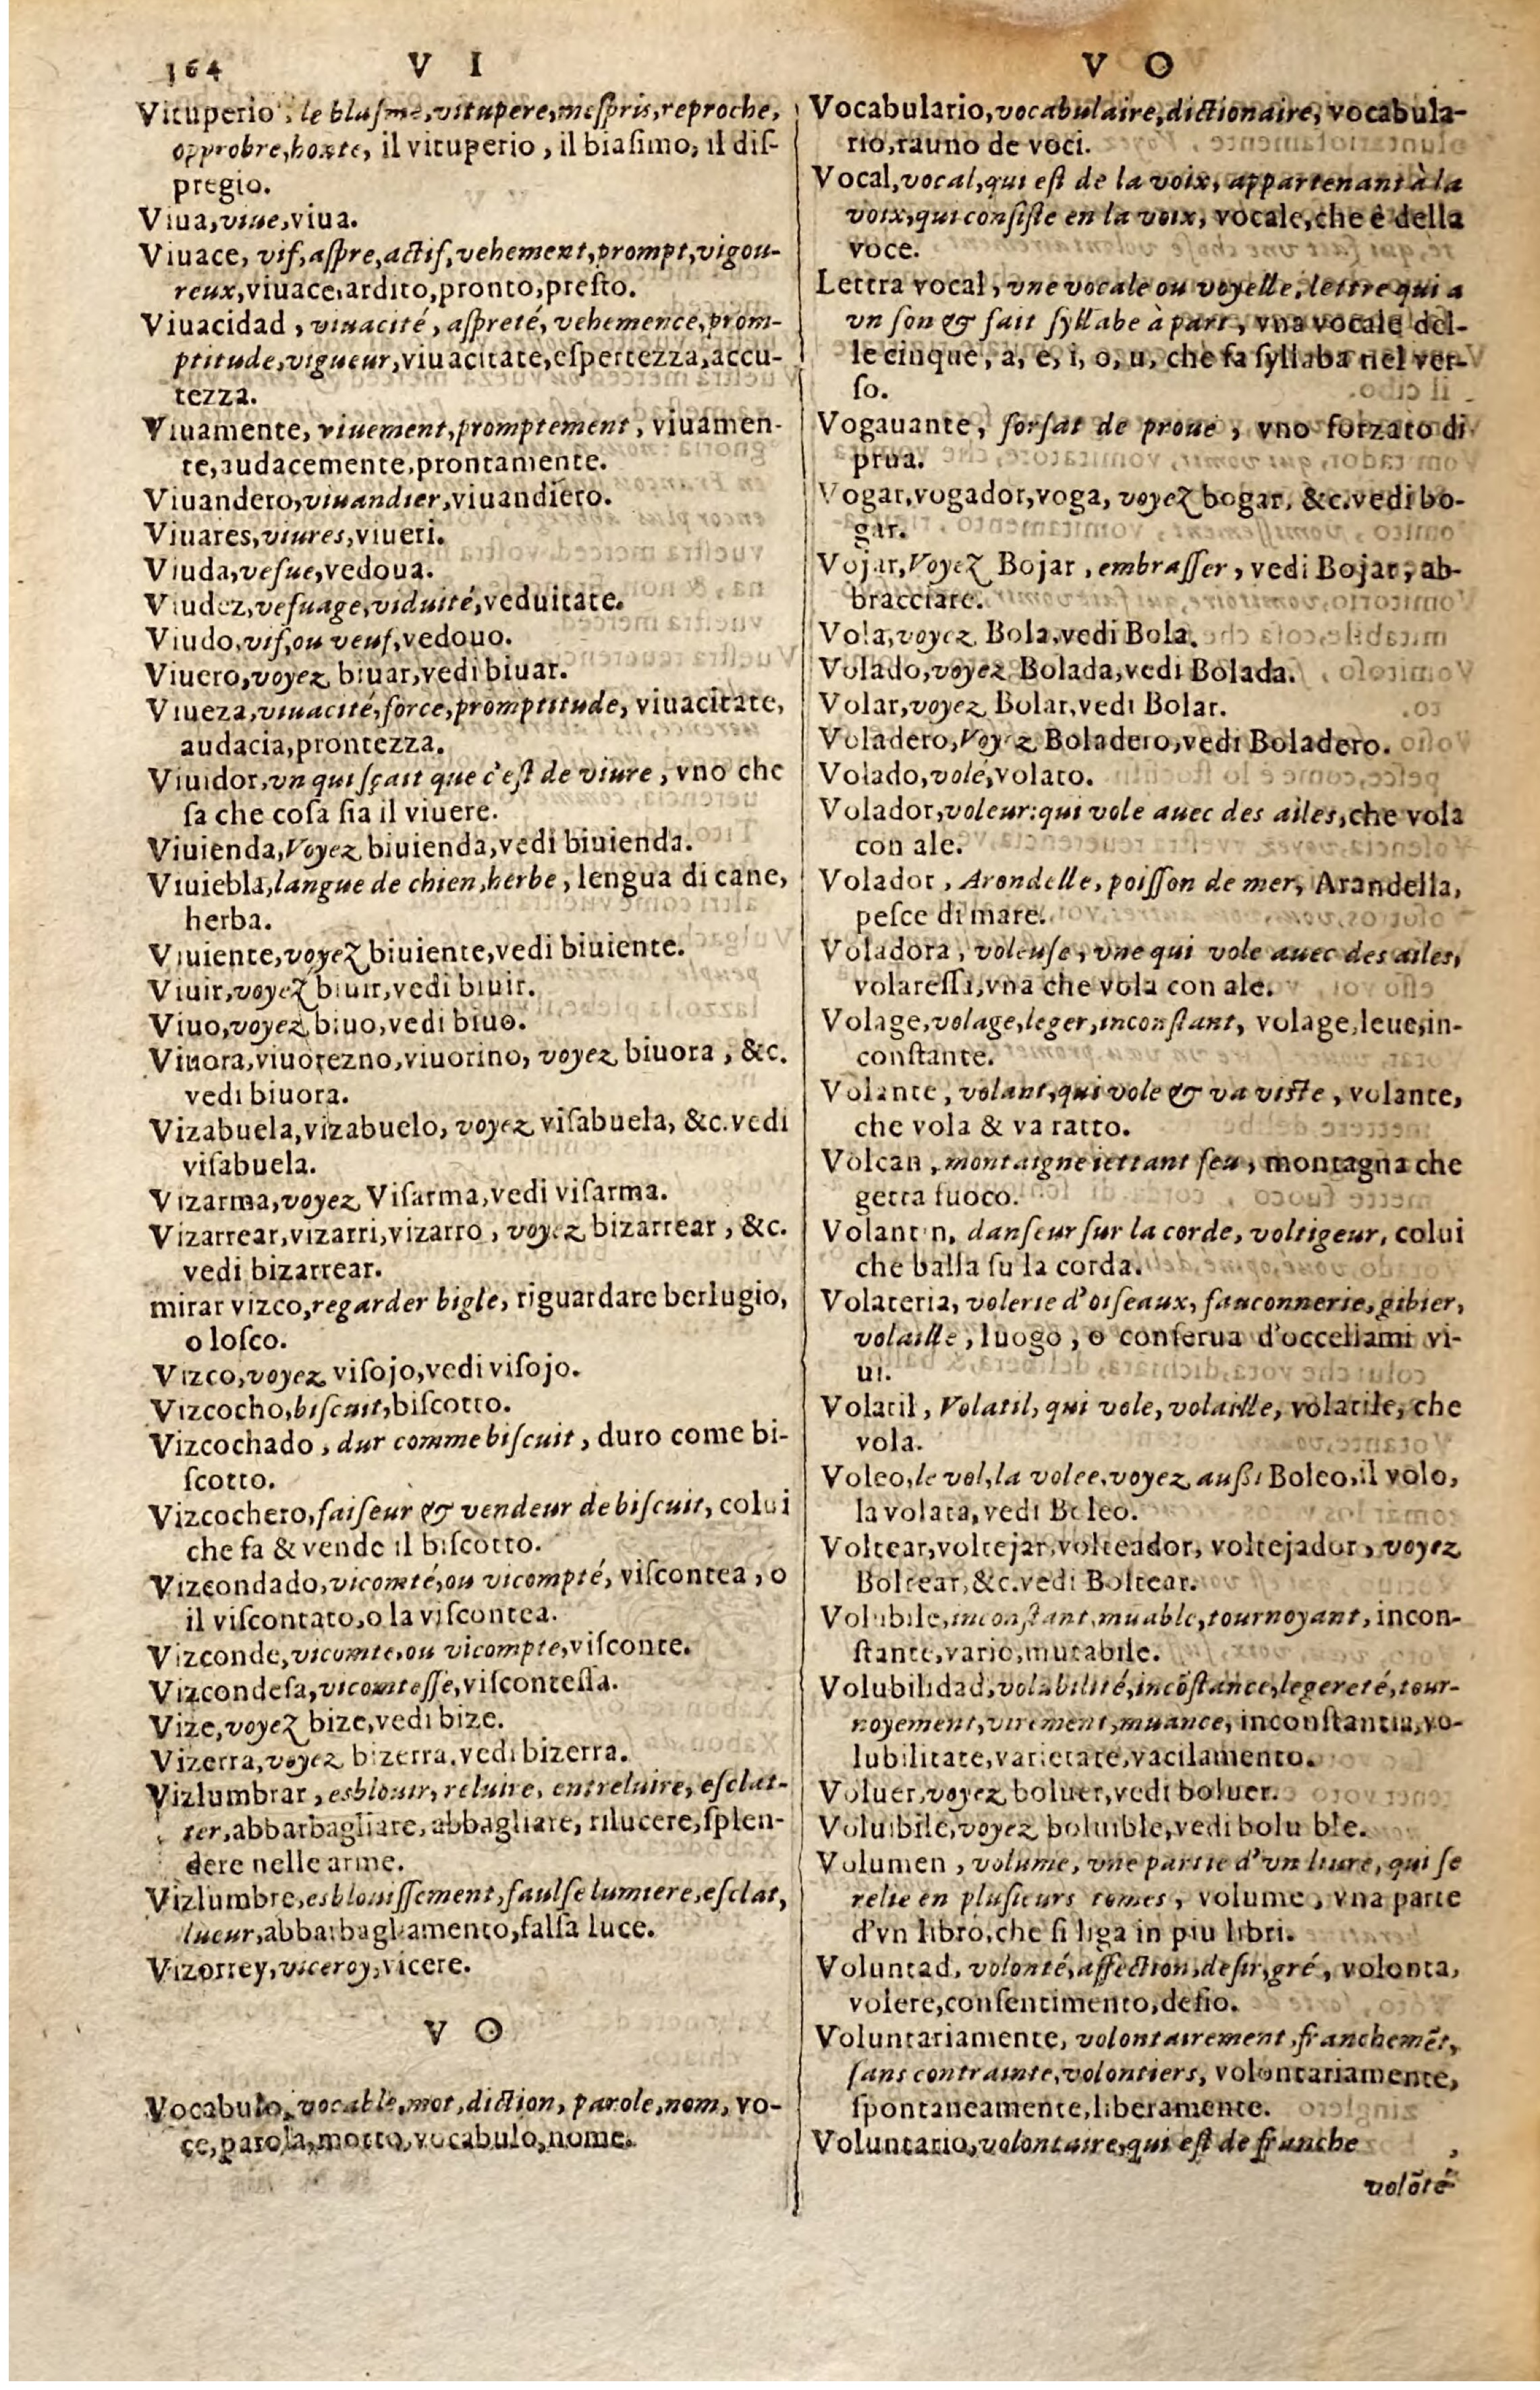 364
V I
V O
Vituperio, le blaſme, vitupere, meſpris, reproche,
opprobre, honte, il vituperio, il biaſimo, il diſ-
pregio.
Viua, viue, viua.
Viuace, vif, aſpre, actif, vehement, prompt, vigou-
reux, viuace, ardito, pronto, preſto.
Viuacidad, viuacité, aſpreté, vehemence, prom-
ptitude, vigueur, viuacitate, eſpertezza, accu-
tezza.
Viuamente, viuement, promptement, viuamen-
te, audacemente, prontamente.
Viuandero, viuandier, viuandiero.
Viuares, viures, viueri.
Viuda, vefue, vedoua.
Viudez, vefuage, viduité, veduitate.
Viudo, vif, ou veuf, vedouo.
Viuero, voyez biuar, vedi biuar.
Viueza, viuacité, force, promptitude, viuacitate,
audacia, prontezza.
Viuidor, vn qui ſçait que c'eſt de viure, vno che
ſa che coſa ſia il viuere.
Viuienda, Voyez biuienda, vedi biuienda.
Viuiebla, langue de chien, herbe, lengua di cane,
herba.
Viuiente, voyez biuiente, vedi biuiente.
Viuir, voyez biuir, vedi biuir.
Viuo, voyez biuo, vedi biuo.
Viuora, viuorezno, viuorino, voyez biuora, &c.
vedi biuora.
Vizabuela, vizabuelo, voyez viſabuela, &c. vedi
viſabuela.
Vizarma, voyez Viſarma, vedi viſarma.
Vizarrear, vizarri, vizarro, voyez bizarrear, &c.
vedi bizarrear.
mirar vizco, regarder bigle, riguardare berlugio,
o loſco.
Vizco, voyez viſojo, vedi viſojo.
Vizcocho, biſcuit, biſcotto.
Vizcochado, dur comme biſcuit, duro come bi-
ſcotto.
Vizcochero, faiſeur & vendeur de biſcuit, colui
che fa & vende il biſcotto.
Vizcondado, vicomté, ou vicompté, viſcontea, o
il viſcontato, o la viſcontea.
Vizconde, vicomte, ou vicompte, viſconte.
Vizcondeſa, vicomteſſe, viſconteſſa.
Vize, voyez bize, vedi bize.
Vizerra, voyez bizerra, vedi bizerra.
Vizlumbrar, esblouir, reluire, entreluire, eſclat-
ter, abbarbagliare, abbagliare, rilucere, ſplen-
dere nelle arme.
Vizlumbre, esblouiſſement, faulſe lumiere, eſclat,
lueur, abbarbagliamento, falſa luce.
Vizorrey, viceroy, vicere.
V O
Vocabulo, vocable, mot, diction, parole, nom, vo-
ce, parola, motto, vocabulo, nome.
Vocabulario, vocabulaire, dictionaire, vocabula-
rio, rauno de voci.
Vocal, vocal, qui eſt de la voix, appartenant à la
voix, qui conſiſte en la voix, vocale, che è della
voce.
Lettra vocal, vne vocale ou voyelle, lettre qui a
vn ſon & fait ſyllabe à part, vna vocale del-
le cinque, a, e, i, o, u, che fa ſyllaba nel ver-
ſo.
Vogauante, forſat de proue, vno forzato di
prua.
Vogar, vogador, voga, voyez bogar, &c. vedi bo-
gar.
Vojar, Voyez Bojar, embraſſer, vedi Bojar, ab-
bracciare.
Vola, voyez Bola, vedi Bola.
Volado, voyez Bolada, vedi Bolada.
Volar, voyez Bolar, vedi Bolar.
Voladero, Voyez Boladero, vedi Boladero.
Volado, vole, volato.
Volador, voleur: qui vole auec des ailes, che vola
con ale.
Volador, Arondelle, poiſſon de mer, Arandella,
peſce di mare.
Voladora, voleuſe, vne qui vole auec des ailes,
volareſſa, vna che vola con ale.
Volage, volage, leger, inconſtant, volage, leue, in-
conſtante.
Volante, volant, qui vole & va viſte, volante,
che vola & va ratto.
Volcan, montaigne iettant feu, montagna che
getta fuoco.
Volantin, danſeur ſur la corde, voltigeur, colui
che balla ſu la corda.
Volateria, volerie d'oiſeaux, fauconnerie, gibier,
volaille, luogo, o conſerua d'occellami vi-
ui.
Volatil, Volatil, qui vole, volaille, volatile, che
vola.
Voleo, le vol, la volee, voyez auſſi Boleo, il volo,
la volata, vedi Boleo.
Voltear, voltejar, volteador, voltejador, voyez
Boltear, &c. vedi Boltear.
Volubile, inconſtant, muable, tournoyant, incon-
ſtante, vario, mutabile.
Volubilidad, volubilité, incõſtance, legereté, tour-
noyement, virement, muance, inconſtantia, vo-
lubilitate, varietate, vacilamento.
Voluer, voyez boluer, vedi boluer.
Voluible, voyez boluible, vedi boluible.
Volumen, volume, vne partie d'vn liure, qui ſe
relie en pluſieurs tomes, volume, vna parte
d'vn libro, che ſi liga in piu libri.
Voluntad, volonté, affection, deſir, gré, volonta,
volere, conſentimento, deſio.
Voluntariamente, volontairement, franchemẽt,
ſans contrainte, volontiers, volontariamente,
ſpontaneamente, liberamente.
Voluntario, volontaire, qui eſt de franche
volõté